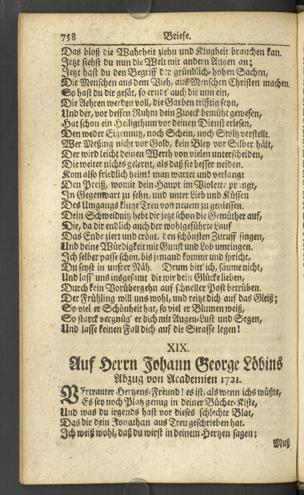 758 Briefe.
Das bloß die Wahrheit ziehn und Klugheit brauchen kan.
Jetzt siehst du nun die Welt mit andern Augen an;
Jetzt hast du den Begriff der gründlich-hohen Sachen,
Die Menschen aus dem Vieh, aus Menschen Christen machen.
So hast du dir gesät, so erndt' auch dir nun ein,
Die Aehren werden voll, die Garben trifftig seyn,
Und der, vor dessen Ruhm dein Zweck bemüht gewesen,
Hat schon ein Heiligthum vor deinen Dienst erlesen,
Den weder Eigennutz, noch Schein, noch Stolz verstellt.
Wer Meßing nicht vor Gold, kein Bley vor Silber hält,
Der wird leicht deinen Werth von vielen unterscheiden,
Die weiter nichts gelernt, als daß sie besser weiden.
Kom also friedlich heim! man wartet und verlangt
Den Preiß, womit dein Haupt im Violette prangt,
In Gegenwart zu sehn, und unter Lieb und Küssen
Des Umgangs kluge Treu von neuem zu genießen.
Dein Schweidnitz hebt dir jetzt schon die Gemüther auf,
Die, da dir endlich auch der wohlgeführte Lauf
Das Ende ziert und crönt, den schönsten Zuruff singen,
Und deine Würdigkeit mit Gunst und Lob umringen.
Ich selber passe schon, bis jemand kommt und spricht,
Du seyst in unsrer Näh. Drum eil' ich, säume nicht,
Und lass' uns insgesamt die wir dein Glücke lieben,
Durch kein Vorübergehn auf schneller Post betrüben.
Der Frühling will uns wohl, und reitzt dich auf das Gleiß;
So viel er Schönheit hat, so viel er Blumen weiß,
So starck vergnüg' er dich mit Augen-Lust und Segen,
Und lasse keinen Fall dich auf die Strasse legen!
XIX.
Auf Herrn Johann George Löbins
Abzug von Academien 1721.
Vertrauter Hertzens-Freund! es ist, als wenn ichs wüßte,
Es sey noch Platz genug in deiner Bücher-Kiste,
Und was du irgends hast vor dieses schlechte Blat,
Das dir dein Jonathan aus Treu geschrieben hat.
Ich weiß wohl, daß du wirst in deinem Hertzen sagen;
Muß